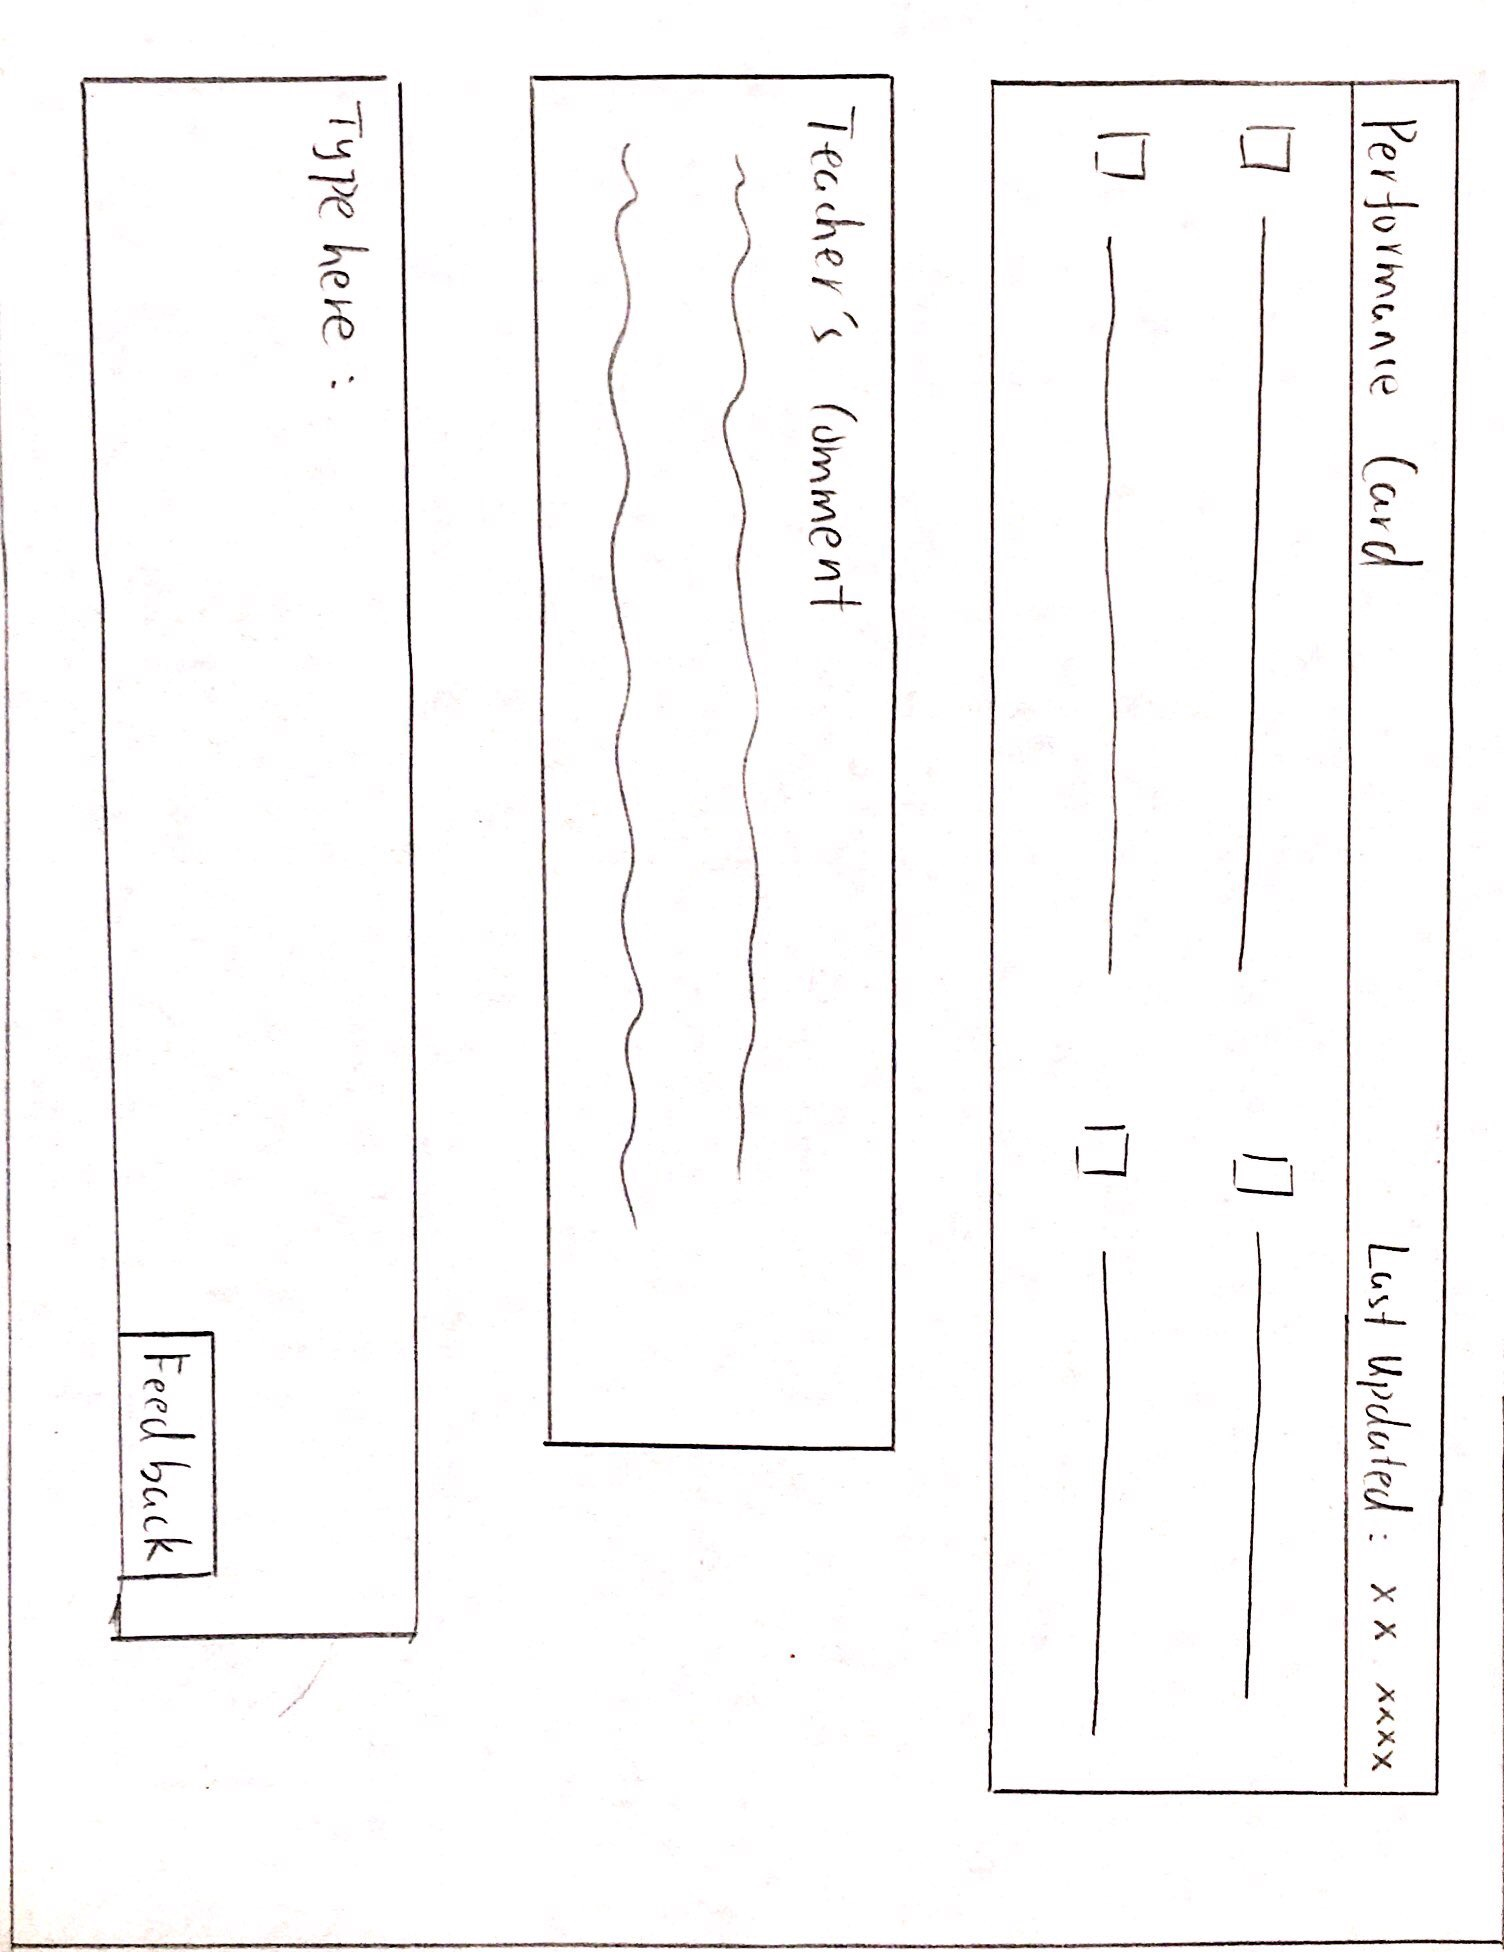 Performance Card
Last Updated: xx xxxx
Teacher's Comment
Type here:
Feedback